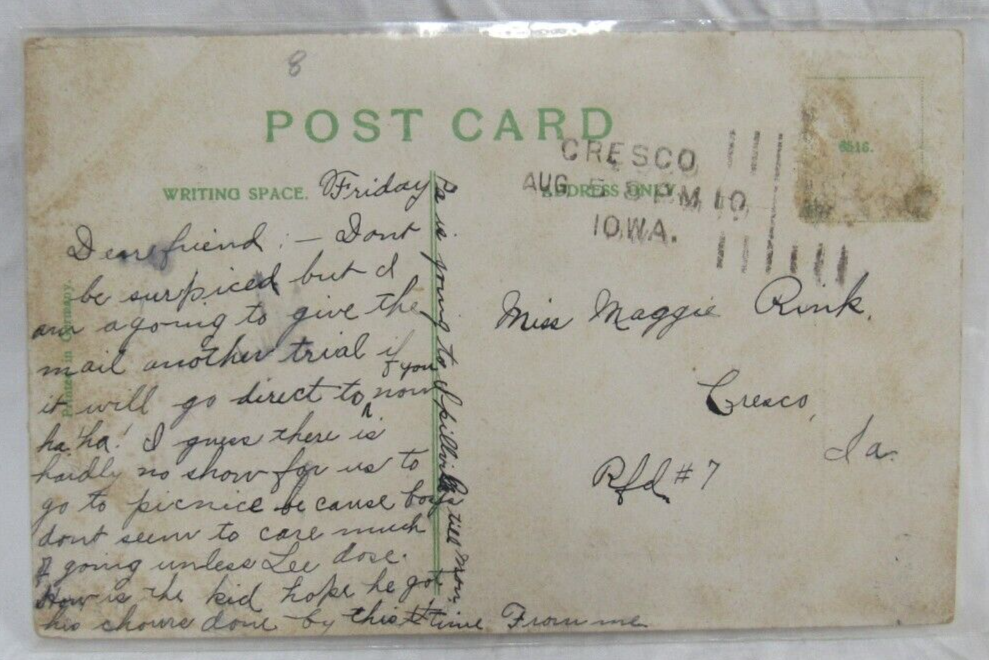 8
POST CARD
CRESCO
AUG 5 8 PM 10
IOWA.
6516.
WRITING SPACE.
ADDRESS ONLY.
Printed in Germany.
Friday
Dear friend :- Dont
be surpriced but I
am agoing to give the
mail another trial if
it will go direct to you now
ha! ha! I guess there is
hardly no show for us to
go to picnice be cause boys
dont seem to care much
going unless Lee dose.
How is the kid hope he got
his choure done by this time From me
Pa is going to Spillville till Mon.
Miss Maggie Rink.
Cresco,
Ia.
Rfd #7